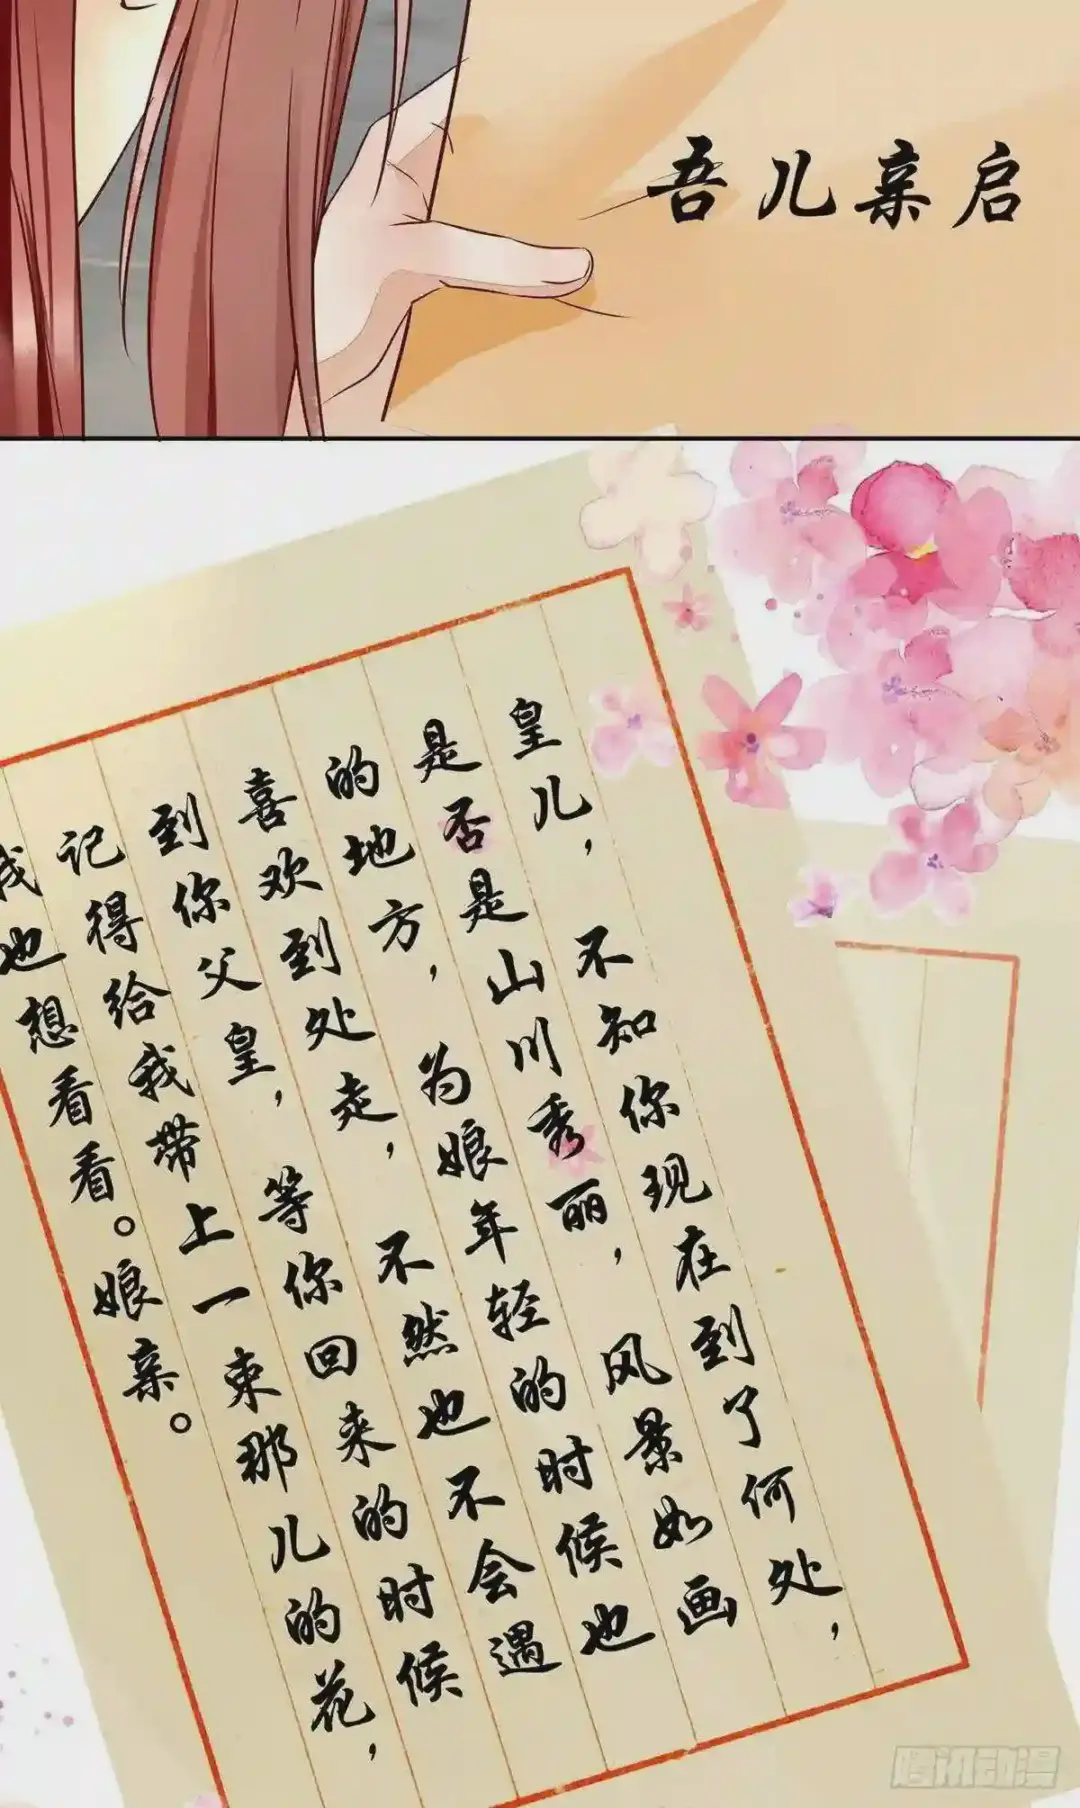 吾儿亲启
皇儿，不知你现在到了何处，
是否是山川秀丽，风景如画
的地方，为娘年轻的时候也
喜欢到处走，不然也不会遇
到你父皇，等你回来的时候
记得给我带上一束那儿的花，
我也想看看。娘亲。
腾讯动漫